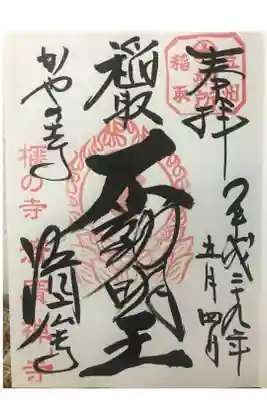 奉拝
平成二十九年
五月四日
稲取
不動明王
かやの寺
済廣寺
稲取
榧の寺 済廣禅寺